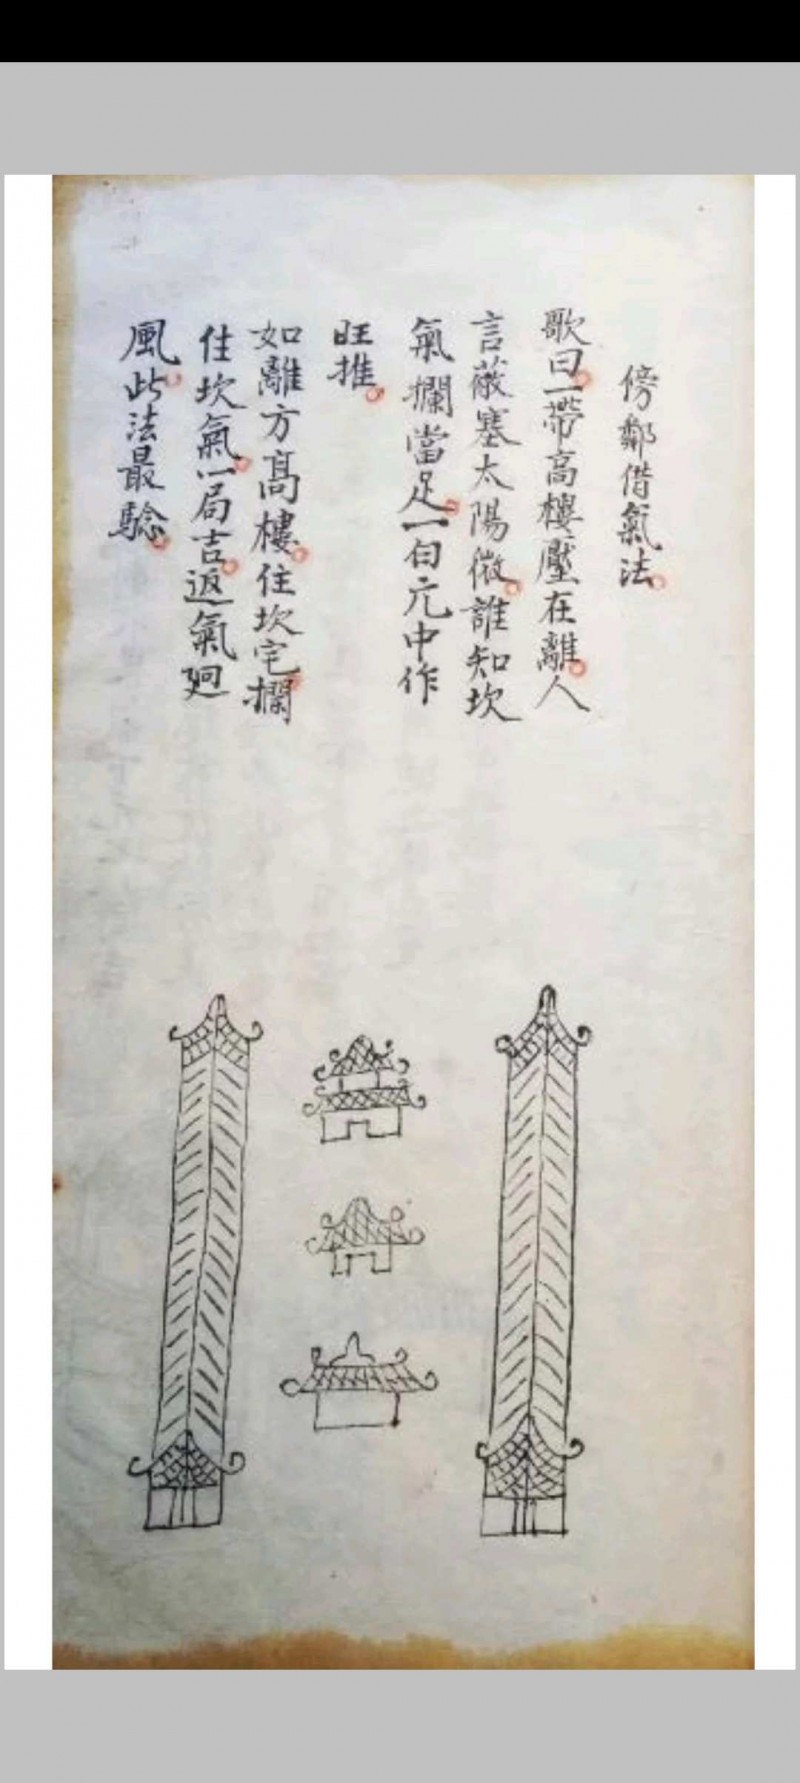 傍鄰借氣法。
歌曰。一帶高樓壓在離。人
言蔽塞太陽微。誰知坎
氣攔當足。一白元中作
旺推。
如離方高樓。住坎宅。攔
住坎氣。一局吉。返氣廻
風。此法最驗。